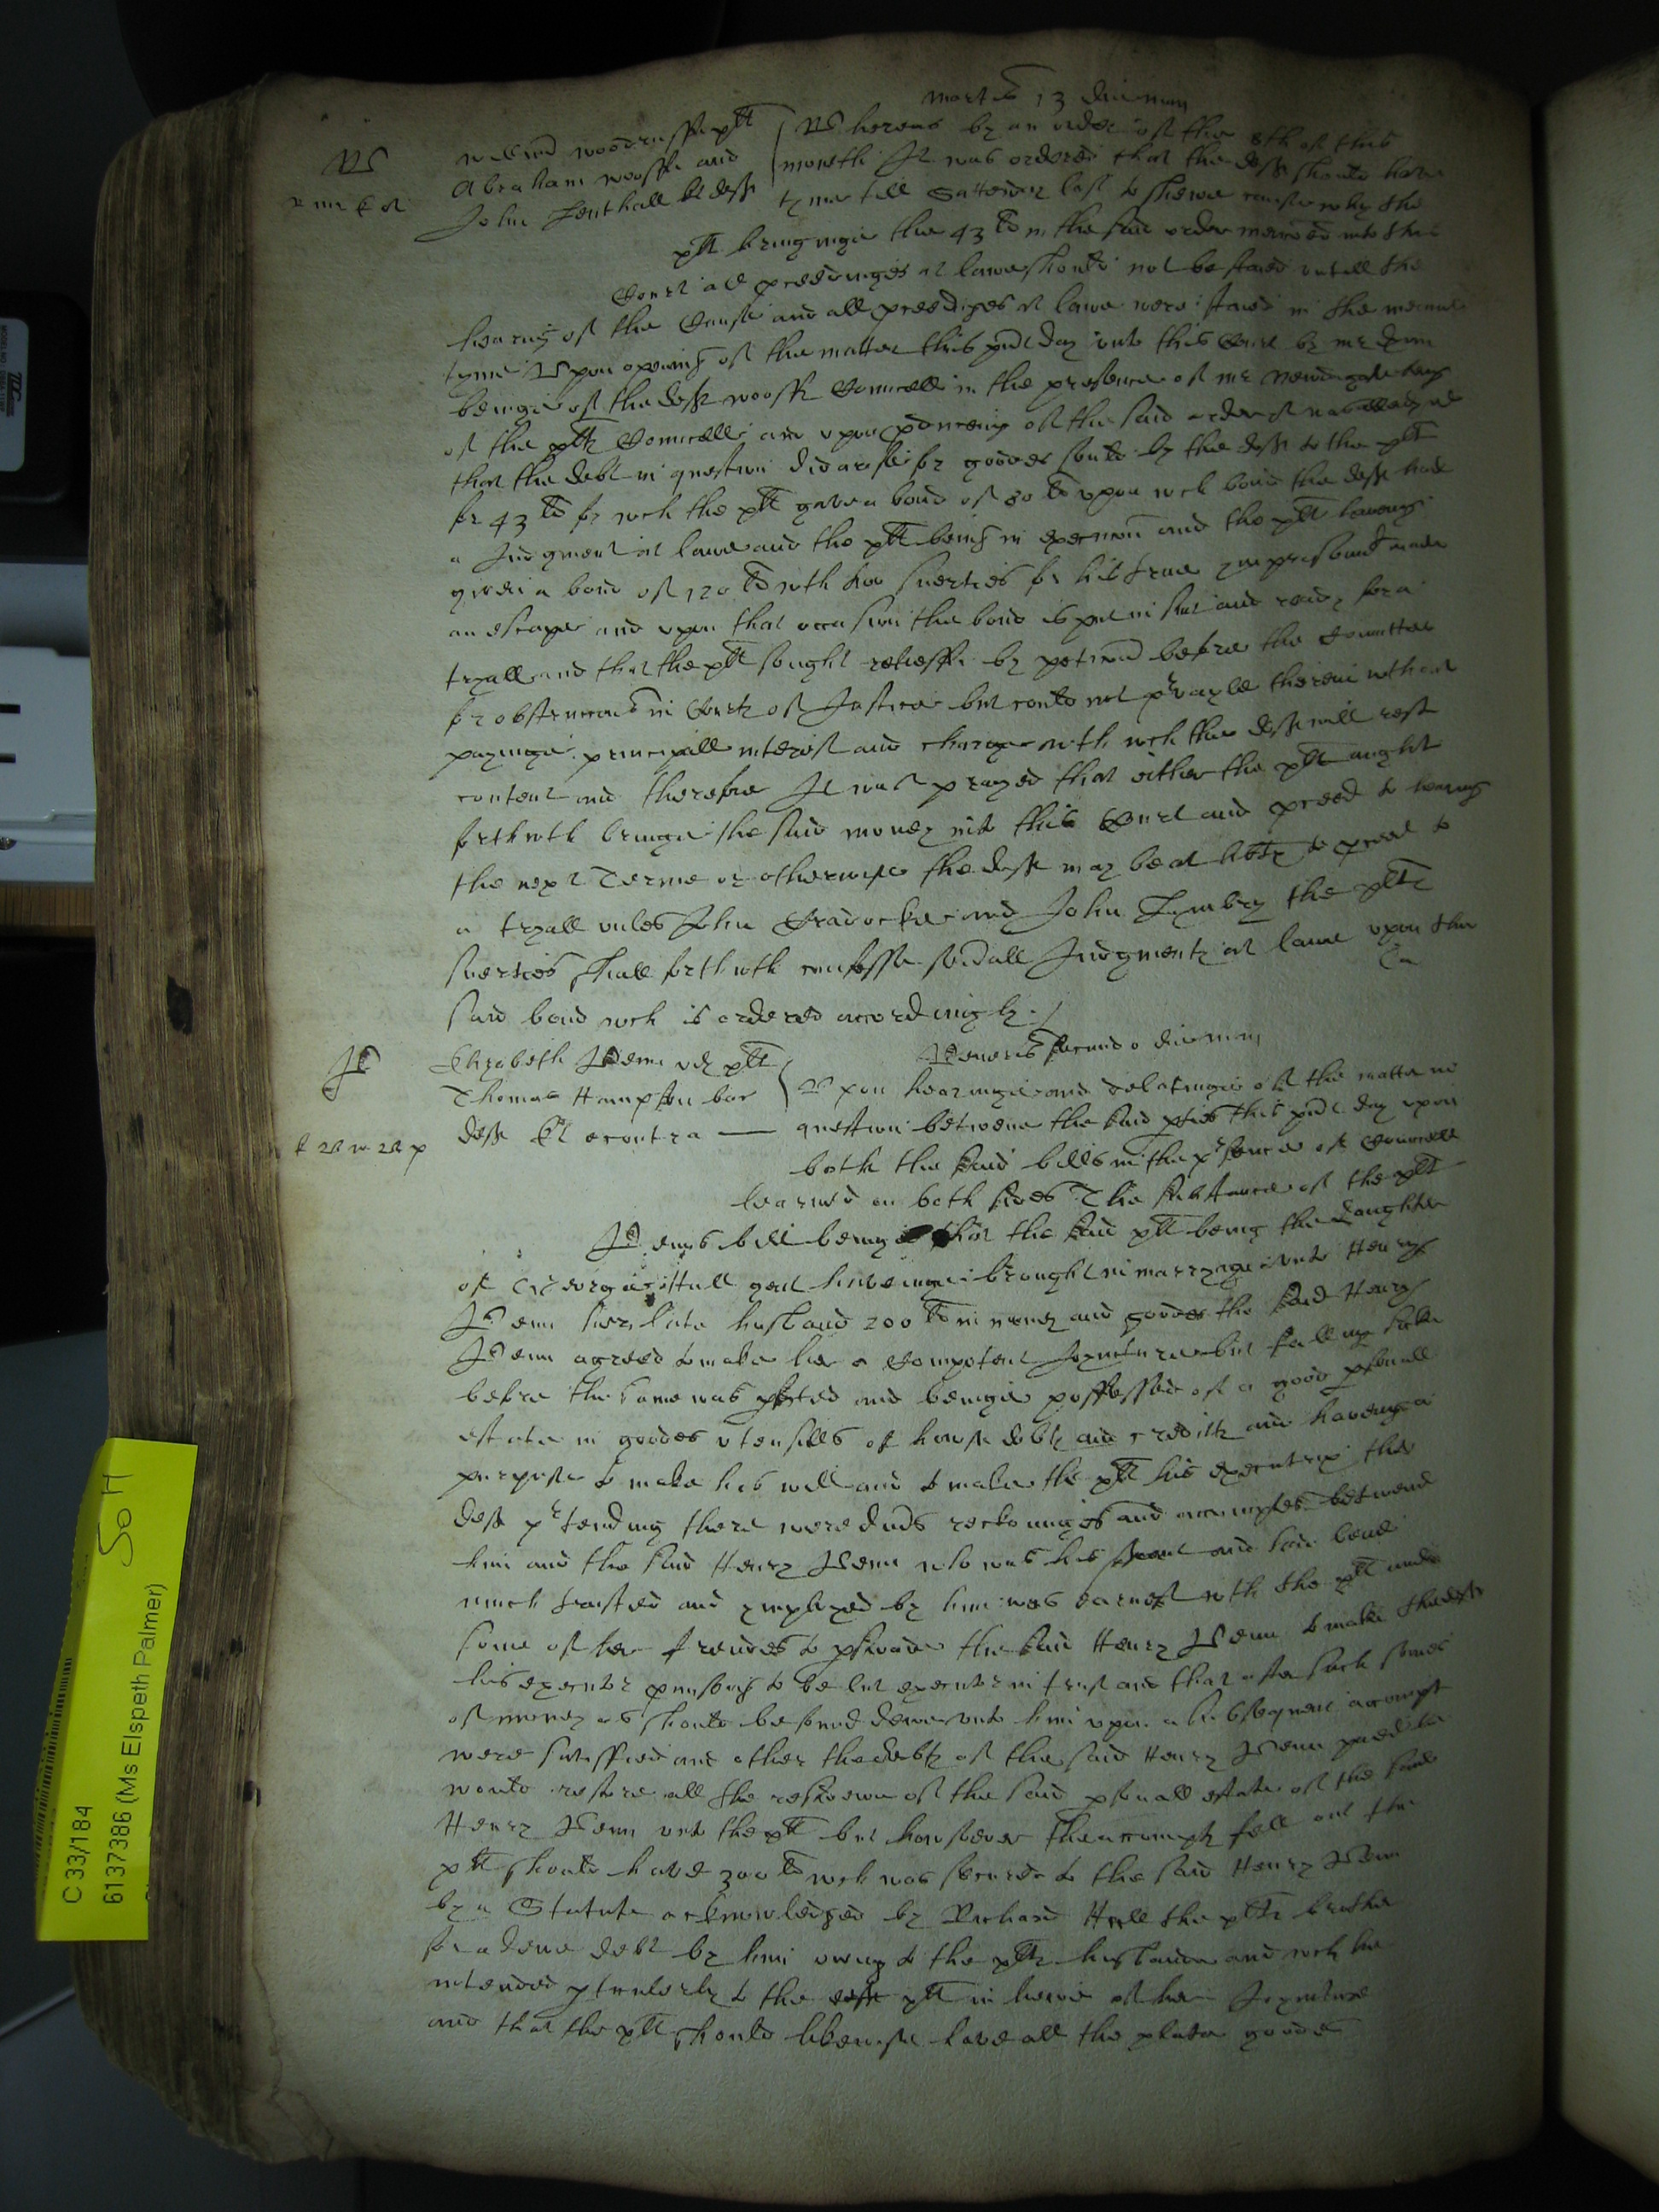 Martis 13 die maii
W
Willm woodroffe plt
Abraham wooffe and
John Lenthall Er deft
Whereas by an order of the 8th of this
month It was ordered that the deft should have
tyme till Satterday last to shewe cause why the
plt bringinge the 43 li in the said order menconed into this
Court all proceedinges at lawe should not be staied untill the
hearing of the Cause and all proceedinges at lawe were staied in the meane
tyme Upon opening of the matter this pnt day unto this Court by mr
beinge of the deft wooffs Councell in the presence of mr Newdigate being
of the plts Councell and upon of the said order it was alleadged
that the debt in question did arise for goodes sould by the deft to the plt
for 43 li for wch the plt gave a bond of 80 li upon wch bond the deft hade
a Judgment at lawe and the plt being in execucon and the plt haveing
given a bond of 120 li with two suerties for his true imprisonmt made
an escape and upon that occasion the bond is put in suit and ready for a
tryall and that the plt sought reliefe by peticon before the Comittee
for obstruccons in Courts of Justice but could not prvayle therein without
payinge principall interest and charges with wch the deft will rest
content and therefore It was prayed that either the plt might
forthwith bringe the said money into this Court and proceed to hearing
the next Terme or otherwise the deft may be at libty to proceed to
a tryall unles John Cradocke and John the plts
suerties shall forthwith confesse sevall Judgments at lawe upon the
said bond wch is ordered accordingly
Veneris secundo die maii
Elizabeth Venn vid plt
Thomas Hampson bar
deft Et econtra
Upon hearinge and debatinge of the matter in
question betweene the said pties this pnt day upon
both the said bills in the prsence of Councell
learned on both sides The substance of the plt
Venns bill being that the said plt being the daughter
of George Hull gent haveinge brought in marryage unto Henry
Venn her late husband 200 li in money and goodes the said Henry
Venn agreed to make her a Competent Joynture but falling sicke
before the same was pfected and beinge possessed of a good psonall
estate in goodes utensills of house debts and creditts and haveing a
purpose to make his will and to make the plt his executrix the
deft prtending there were divs reckoninges and accompts betweene
him and the said Henry Venn who was his servant and had bene
much trusted and imployed by him was earnest with the plt and
some of her frendes to pswade the said Henry Venn to make the deft
his executor promising to be but executor in trust and that after such somes
of money as should be found dewe unto him upon a subsequent accompt
were satisfied and other the debts of the said Henry Venn paed he
would restore all the residewe of the said psonall estate of the said
Henry Venn unto the plt but howsoever the accompts fell out the
plt should have 300 li wch was secured to the said Henry Venn
by a Statute acknowledged by Richard Hull the plts brother
for a dewe debt by him oweing to the plts husband and wch he
intended pticulerly to the plt in liewe of her Joynture
and that the plt should likewise have all the plate goodes
C 33/184
6137386 (Ms Elspeth Palmer)
SoH